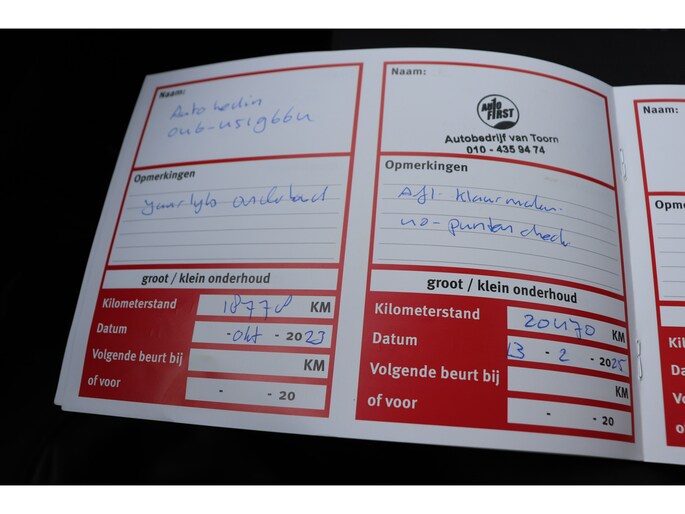 Naam:
Opmerkingen
groot / klein onderhoud
Kilometerstand 18778 KM
Datum - okt - 2023
Volgende beurt bij KM
of voor - - 20
Naam:
AUTO FIRST
Autobedrijf van Toorn
010 - 435 94 74
Opmerkingen
Afl. klaarmaken.
110-punten check
groot / klein onderhoud
Kilometerstand 20470 KM
Datum 13 - 2 - 2025
Volgende beurt bij KM
of voor - - 20
Naam: